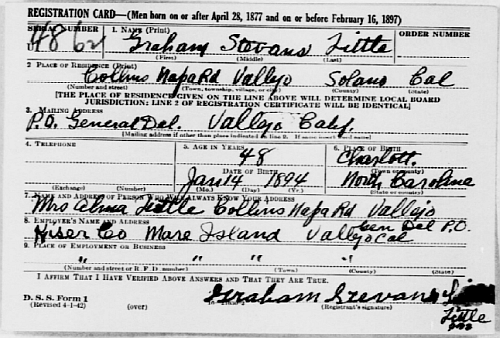 REGISTRATION CARD—(Men born on or after April 28, 1877 and on or before February 16, 1897)
SERIAL NUMBER 1. NAME (Print) ORDER NUMBER
Graham Stevans Little
(First) (Middle) (Last)
2. PLACE OF RESIDENCE (Print)
Collins Napa Rd Vallejo Solano Cal
(Number and street) (Town, township, village, or city) (County) (State)
[THE PLACE OF RESIDENCE GIVEN ON THE LINE ABOVE WILL DETERMINE LOCAL BOARD
JURISDICTION; LINE 2 OF REGISTRATION CERTIFICATE WILL BE IDENTICAL]
3. MAILING ADDRESS
P.O. General Del. Vallejo Calif.
[Mailing address if other than place indicated on line 2. If same insert word same]
4. TELEPHONE 5. AGE IN YEARS 6. PLACE OF BIRTH
48 Charlott.
DATE OF BIRTH (Town or county)
Jan 14 1894 North Carolina
(Exchange) (Number) (Mo.) (Day) (Yr.) (State or country)
7. NAME AND ADDRESS OF PERSON WHO WILL ALWAYS KNOW YOUR ADDRESS
Mrs Alma Little Collins Napa Rd Vallejo
8. EMPLOYER'S NAME AND ADDRESS Gen Del P.O.
Kiser Co Mare Island Vallejo Cal
9. PLACE OF EMPLOYMENT OR BUSINESS
" " " "
(Number and street or R. F. D. number) (Town) (County) (State)
I AFFIRM THAT I HAVE VERIFIED ABOVE ANSWERS AND THAT THEY ARE TRUE.
D. S. S. Form 1 Graham Stevans
(Revised 4-1-42) (over) (Registrant's signature) Little